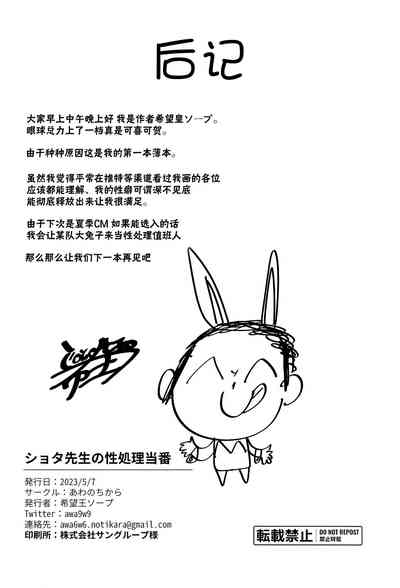 后记
大家早上中午晚上好 我是作者希望皇ソープ。
眼球总力上了一档真是可喜可贺。
由于种种原因这是我的第一本薄本。
虽然我觉得平常在推特等渠道看过我画的各位
应该都能理解、我的性癖可谓深不见底
能彻底释放出来让我很满足。
由于下次是夏季CM 如果能选入的话
我会让某队大兔子来当性处理值班人
那么那么让我们下一本再见吧
ショタ先生の性処理当番
発行日：2023/5/7
サークル：あわのちから
発行者：希望王ソープ
Twitter：awa9w9
連絡先：awa6w6.notikara@gmail.com
印刷所：株式会社サングループ様
転載禁止 DO NOT REPOST
禁止转载